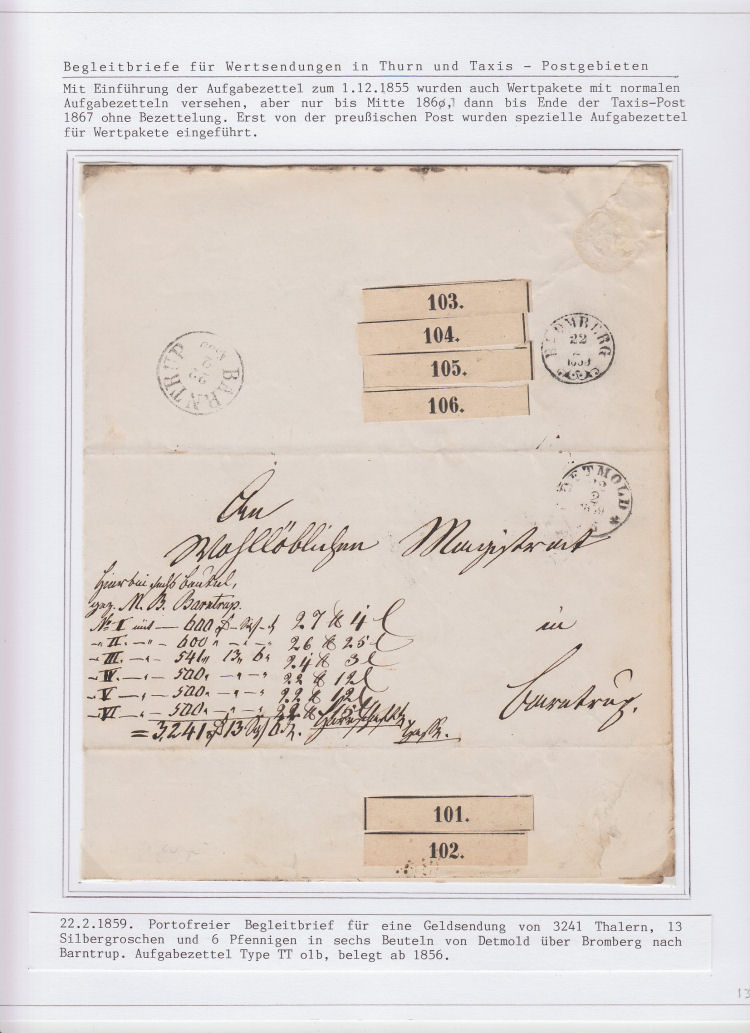 Begleitbriefe für Wertsendungen in Thurn und Taxis - Postgebieten
Mit Einführung der Aufgabezettel zum 1.12.1855 wurden auch Wertpakete mit normalen
Aufgabezetteln versehen, aber nur bis Mitte 186ø, dann bis Ende der Taxis-Post
1867 ohne Bezettelung. Erst von der preußischen Post wurden spezielle Aufgabezettel
für Wertpakete eingeführt.
103.
104.
105.
106.
BARNTRUP
BROMBERG
22
1859
DETMOLD
2
An
Wohllöblichen Magistrat
Hierbei sechs Beutel,
gez. M. B. Barntrup.
No I mit — 600 27 4
" II. — " — 600 " — " — " 26 25
" III. — " — 541 " 13 " 6 " 24 3
" IV. — " — 500 " — " — " 22 12
" V. — " — 500 " — " — " 22 12
" VI — " — 500 " — " — " 22 15
= 3,241 13 6
in
Barntrup.
101.
102.
22.2.1859. Portofreier Begleitbrief für eine Geldsendung von 3241 Thalern, 13
Silbergroschen und 6 Pfennigen in sechs Beuteln von Detmold über Bromberg nach
Barntrup. Aufgabezettel Type TT olb, belegt ab 1856.
13